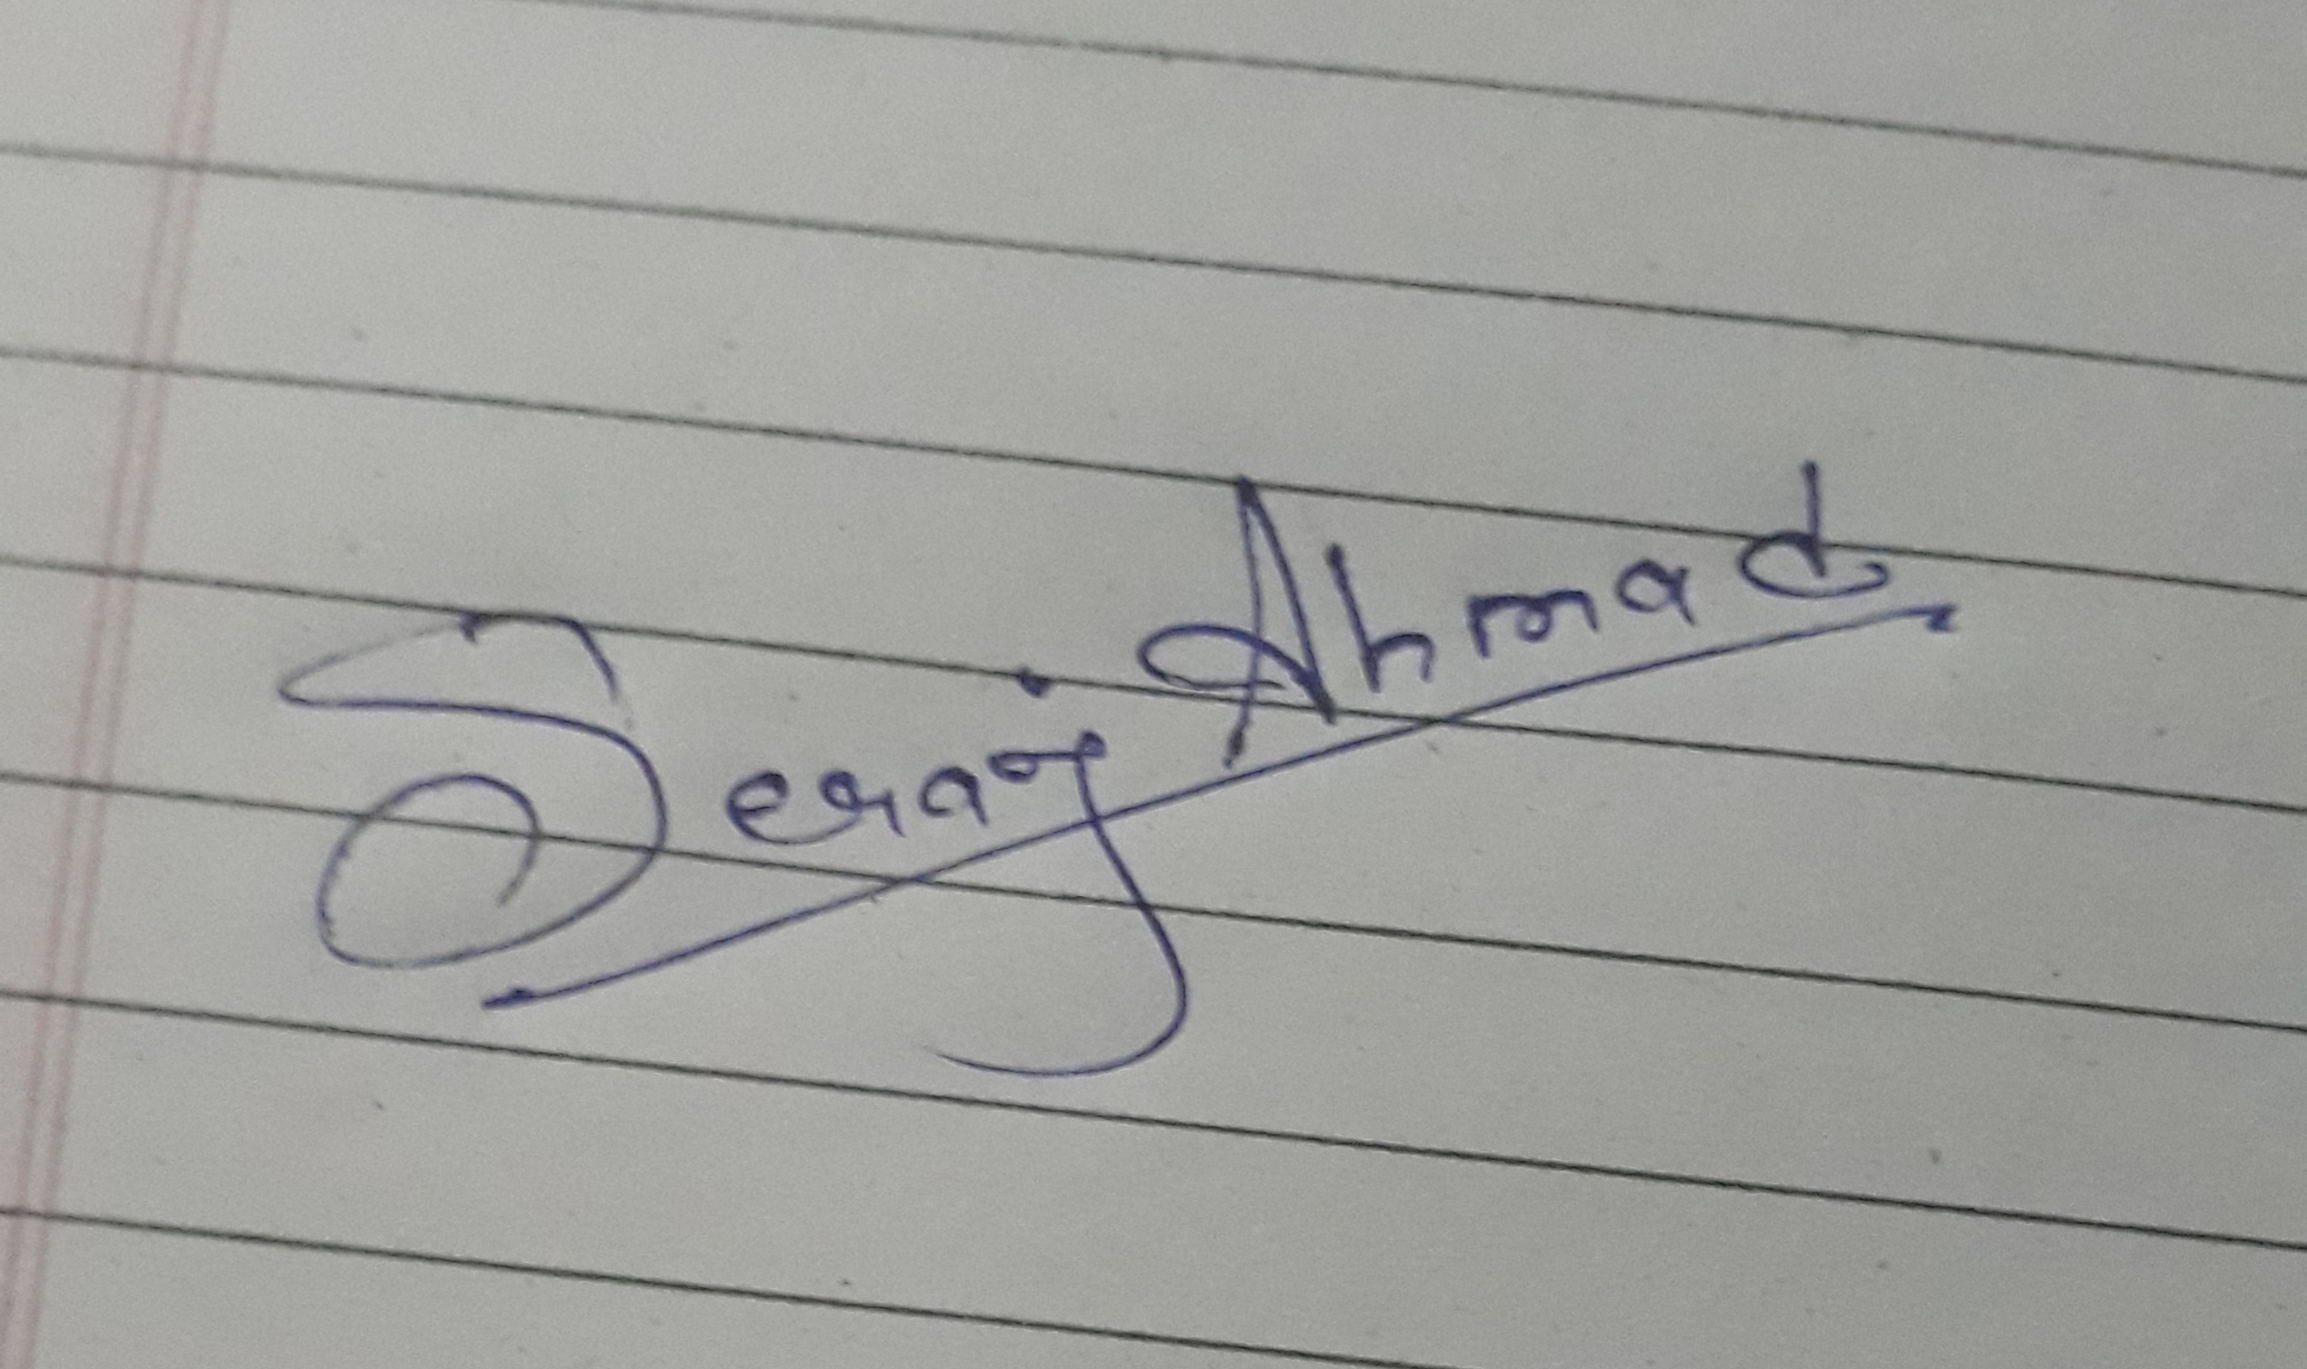 Seraj Ahmad